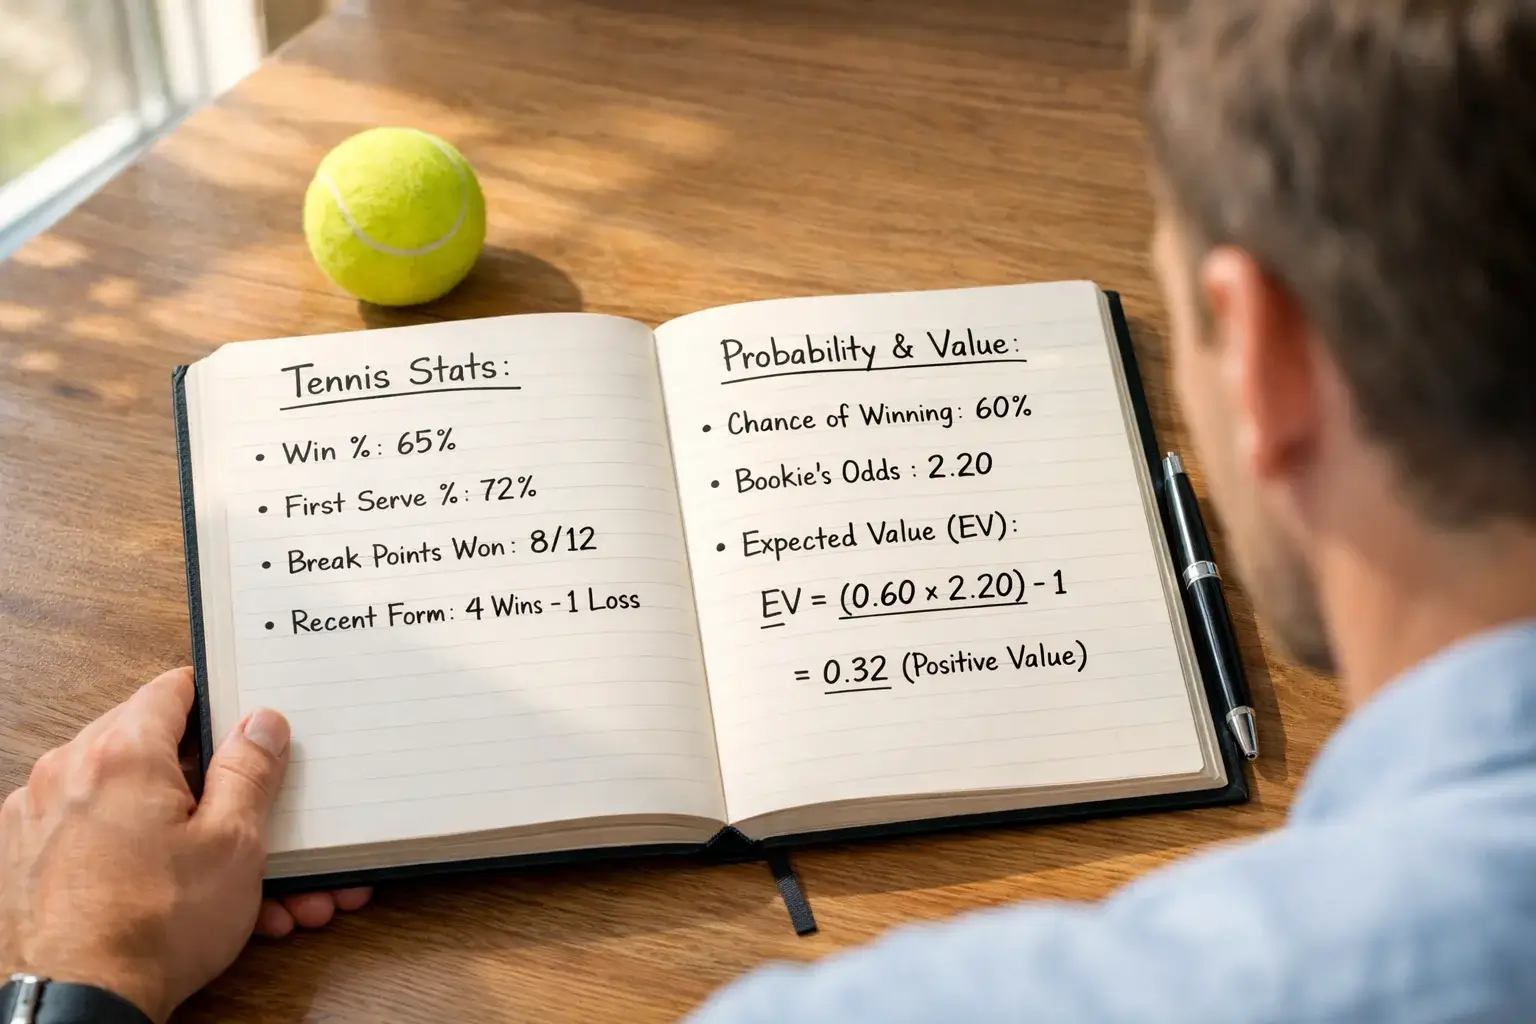 Tennis Stats:
• Win %: 65%
• First Serve %: 72%
• Break Points Won: 8/12
• Recent Form: 4 Wins - 1 Loss
Probability & Value:
• Chance of Winning: 60%
• Bookie's Odds : 2.20
• Expected Value (EV):
EV = (0.60 × 2.20) - 1
= 0.32 (Positive Value)